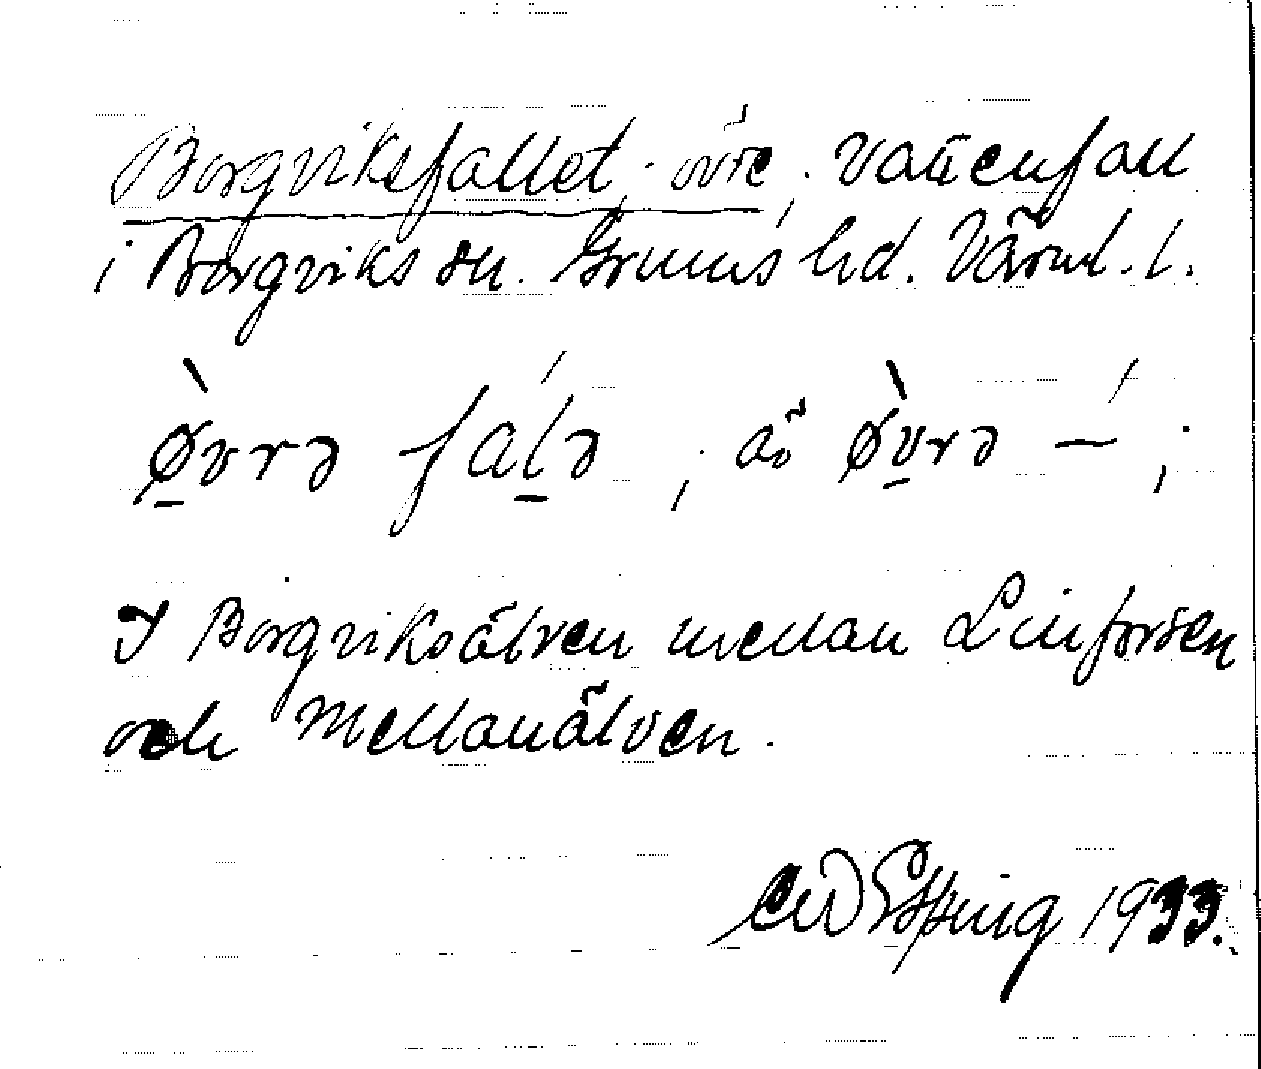 Borgviksfallet, övre, Vattenfall
i Borgviks sn. Grums hd. Värml. l.
øvrə falə, äv øvrə — ;
I Borgviksälven mellan Linforsen
och Mellanälven.
1933.